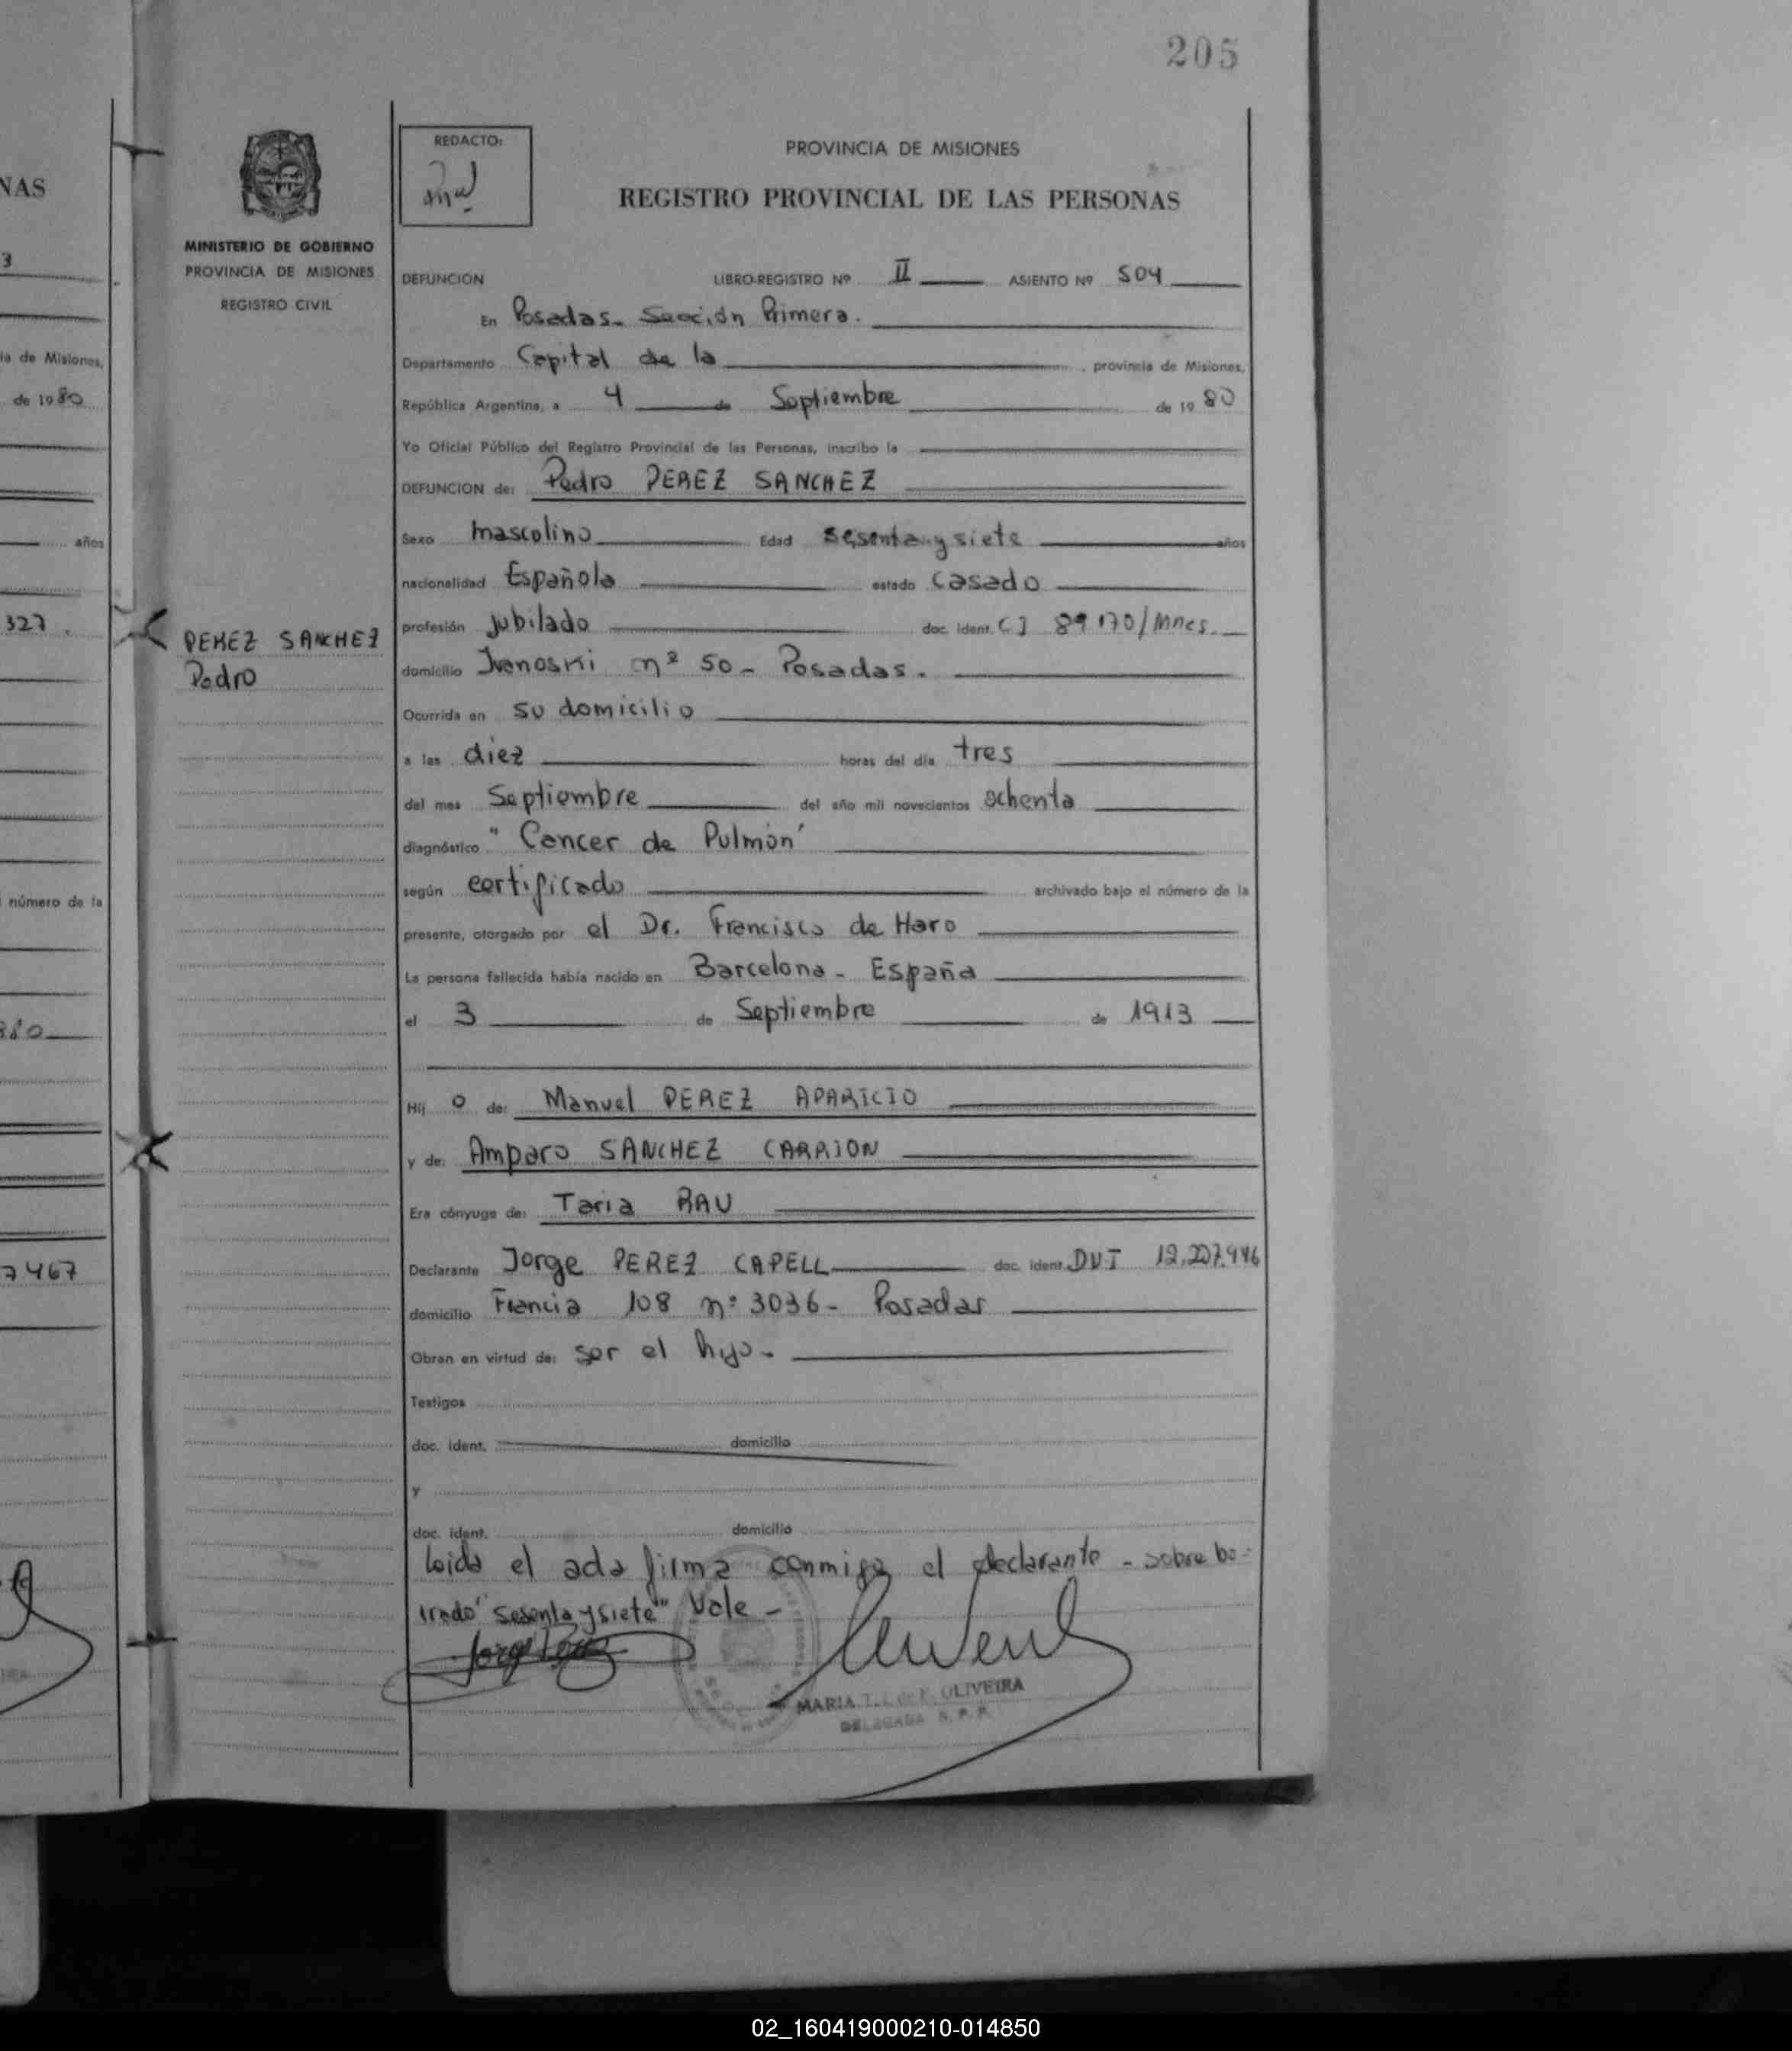 205
NAS
3
ia de Misiones,
de 1980
años
327.
número de la
7467
MINISTERIO DE GOBIERNO
PROVINCIA DE MISIONES
REGISTRO CIVIL
PEREZ SANCHEZ
Pedro
REDACTO:
PROVINCIA DE MISIONES
REGISTRO PROVINCIAL DE LAS PERSONAS
DEFUNCION LIBRO-REGISTRO Nº II ASIENTO Nº 504
En Posadas - Sección Primera.
Departamento Capital de la , provincia de Misiones,
República Argentina, a 4 de Septiembre de 1980
Yo Oficial Público del Registro Provincial de las Personas, inscribo la
DEFUNCION de: Pedro PEREZ SANCHEZ
Sexo masculino Edad sesenta y siete años
nacionalidad Española estado casado
profesión jubilado doc. ident. CI 89170/Mnes.
domicilio Ivanoski nº 50 - Posadas.
Ocurrida en su domicilio
a las diez horas del día tres
del mes Septiembre del año mil novecientos ochenta
diagnóstico "Cancer de Pulmón"
según certificado archivado bajo el número de la
presente, otorgado por el Dr. Francisco de Haro
La persona fallecida había nacido en Barcelona - España
el 3 de Septiembre de 1913
Hijo de: Manuel PEREZ APARICIO
y de: Amparo SANCHEZ CARRION
Era cónyuge de: Taria RAU
Declarante Jorge PEREZ CAPELL doc. ident. DNI
domicilio Francia 108 nº 3036 - Posadas
Obran en virtud de: ser el hijo -
Testigos
doc. ident. domicilio
y
doc. ident. domicilio
Leida el acta firma conmigo el declarante - sobre bo-
rrado "sesenta y siete" Vale -
Jorge Perez
MARIA OLIVEIRA
DELEGADA R. P. P.
02_160419000210-014850